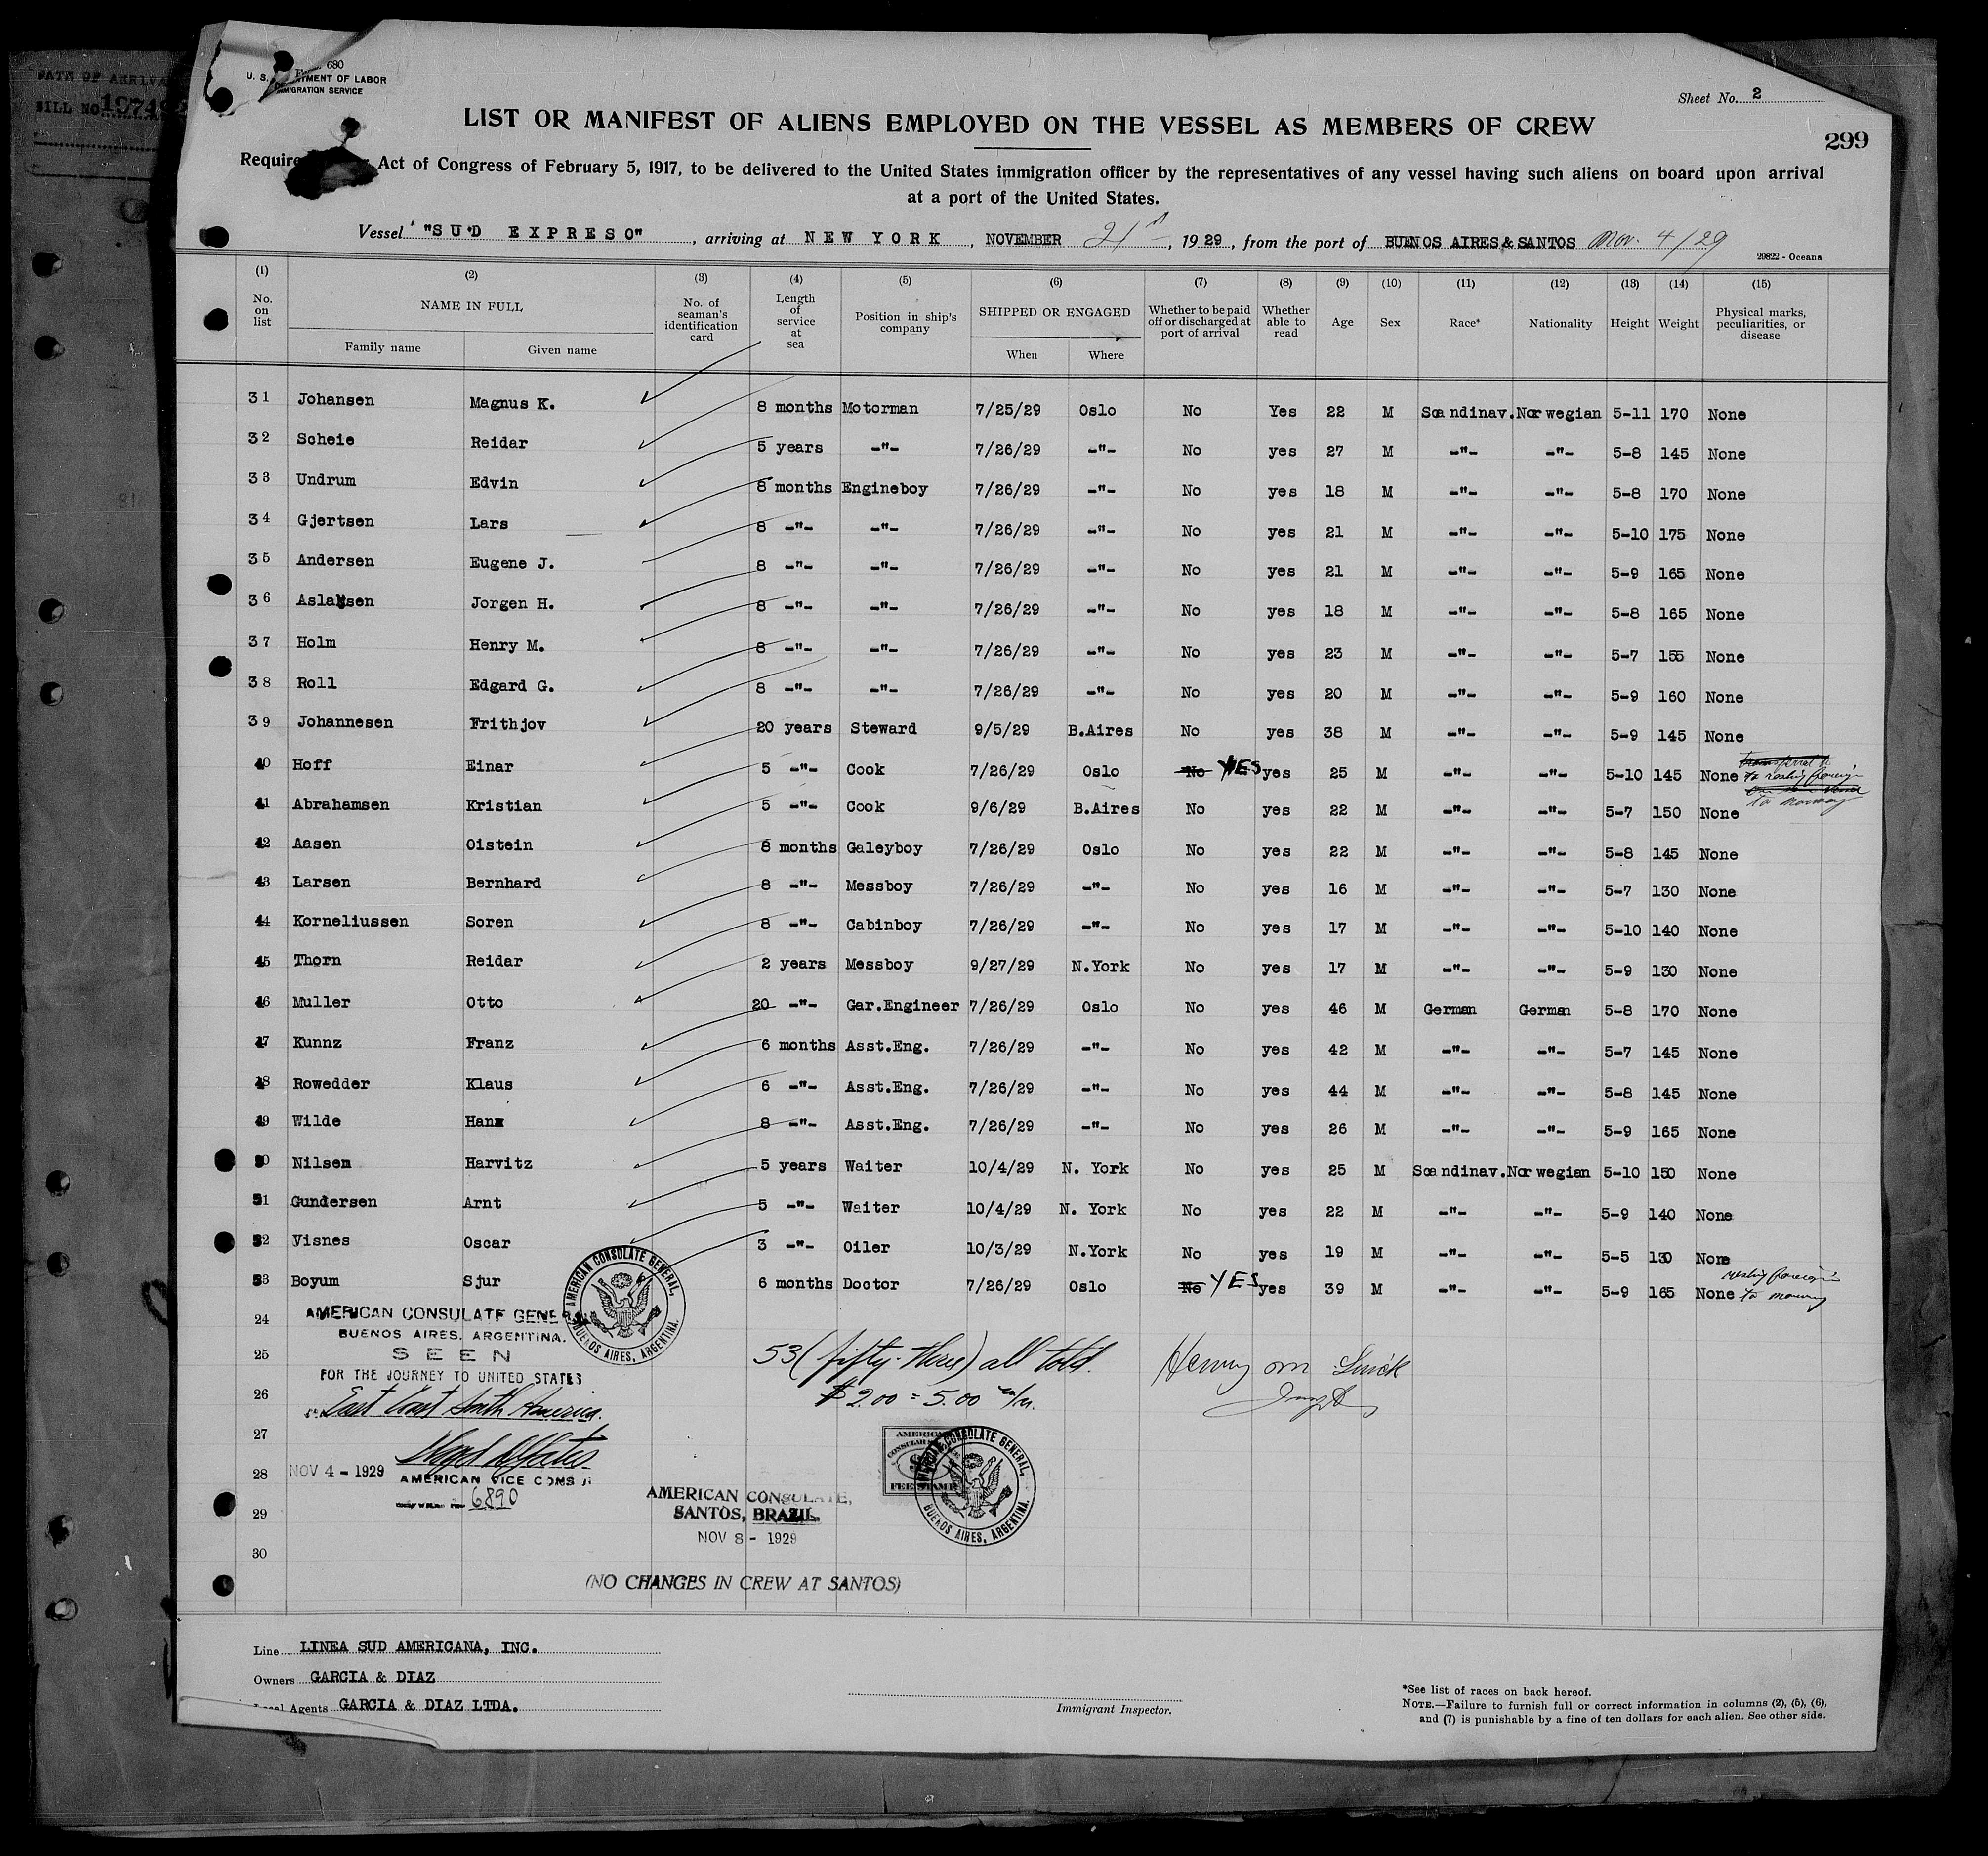 DATE OF ARRIVA
BILL NO. 10749
680
U. S. DEPARTMENT OF LABOR
IMMIGRATION SERVICE
Sheet No. 2
LIST OR MANIFEST OF ALIENS EMPLOYED ON THE VESSEL AS MEMBERS OF CREW
299
Require Act of Congress of February 5, 1917, to be delivered to the United States immigration officer by the representatives of any vessel having such aliens on board upon arrival
at a port of the United States.
Vessel "SUD EXPRESO", arriving at NEW YORK, NOVEMBER 21st, 1929, from the port of BUENOS AIRES & SANTOS Nov. 4/29
29822 - Oceana
(1) (2) (3) (4) (5) (6) (7) (8) (9) (10) (11) (12) (13) (14) (15)
No. on list NAME IN FULL Family name Given name No. of seaman's identification card Length of service at sea Position in ship's company SHIPPED OR ENGAGED When Where Whether to be paid off or discharged at port of arrival Whether able to read Age Sex Race* Nationality Height Weight Physical marks, peculiarities, or disease
31 Johansen Magnus K. 8 months Motorman 7/25/29 Oslo No Yes 22 M Scandinav. Norwegian 5-11 170 None
32 Scheie Reidar 5 years -"- 7/26/29 -"- No yes 27 M -"- -"- 5-8 145 None
33 Undrum Edvin 8 months Engineboy 7/26/29 -"- No yes 18 M -"- -"- 5-8 170 None
34 Gjertsen Lars 8 -"- -"- 7/26/29 -"- No yes 21 M -"- -"- 5-10 175 None
35 Andersen Eugene J. 8 -"- -"- 7/26/29 -"- No yes 21 M -"- -"- 5-9 165 None
36 Aslaksen Jorgen H. 8 -"- -"- 7/26/29 -"- No yes 18 M -"- -"- 5-8 165 None
37 Holm Henry M. 8 -"- -"- 7/26/29 -"- No yes 23 M -"- -"- 5-7 155 None
38 Roll Edgard G. 8 -"- -"- 7/26/29 -"- No yes 20 M -"- -"- 5-9 160 None
39 Johannesen Frithjov 20 years Steward 9/5/29 B.Aires No yes 38 M -"- -"- 5-9 145 None
40 Hoff Einar 5 -"- Cook 7/26/29 Oslo No YES yes 25 M -"- -"- 5-10 145 None to reship foreign
to Norway
41 Abrahamsen Kristian 5 -"- Cook 9/6/29 B.Aires No yes 22 M -"- -"- 5-7 150 None
42 Aasen Oistein 8 months Galeyboy 7/26/29 Oslo No yes 22 M -"- -"- 5-8 145 None
43 Larsen Bernhard 8 -"- Messboy 7/26/29 -"- No yes 16 M -"- -"- 5-7 130 None
44 Korneliussen Soren 8 -"- Cabinboy 7/26/29 -"- No yes 17 M -"- -"- 5-10 140 None
45 Thorn Reidar 2 years Messboy 9/27/29 N.York No yes 17 M -"- -"- 5-9 130 None
46 Muller Otto 20 -"- Gar.Engineer 7/26/29 Oslo No yes 46 M German German 5-8 170 None
47 Kunnz Franz 6 months Asst.Eng. 7/26/29 -"- No yes 42 M -"- -"- 5-7 145 None
48 Rowedder Klaus 6 -"- Asst.Eng. 7/26/29 -"- No yes 44 M -"- -"- 5-8 145 None
49 Wilde Hans 8 -"- Asst.Eng. 7/26/29 -"- No yes 26 M -"- -"- 5-9 165 None
50 Nilsen Harvitz 5 years Waiter 10/4/29 N. York No yes 25 M Scandinav. Norwegian 5-10 150 None
51 Gundersen Arnt 5 -"- Waiter 10/4/29 N. York No yes 22 M -"- -"- 5-9 140 None
52 Visnes Oscar 3 -"- Oiler 10/3/29 N.York No yes 19 M -"- -"- 5-5 130 None
53 Boyum Sjur 6 months Doctor 7/26/29 Oslo No YES yes 39 M -"- -"- 5-9 165 None reship foreign
to Norway
24
AMERICAN CONSULATE GENERAL
BUENOS AIRES, ARGENTINA.
AMERICAN CONSULATE GENERAL, BUENOS AIRES, ARGENTINA.
25
SEEN
FOR THE JOURNEY TO UNITED STATES
53 (fifty-three) all told.
Henry M
26
East Coast South America
$2.00 = 5.00 m/n.
27
28
NOV 4 - 1929
AMERICAN VICE CONSUL
6890
AMERICAN CONSULAR FEE STAMP
AMERICAN CONSULATE GENERAL, BUENOS AIRES, ARGENTINA.
AMERICAN CONSULATE,
29
SANTOS, BRAZIL.
NOV 8 - 1929
30
(NO CHANGES IN CREW AT SANTOS)
Line LINEA SUD AMERICANA, INC.
Owners GARCIA & DIAZ
Agents GARCIA & DIAZ LTDA.
Immigrant Inspector.
*See list of races on back hereof.
NOTE.—Failure to furnish full or correct information in columns (2), (5), (6),
and (7) is punishable by a fine of ten dollars for each alien. See other side.